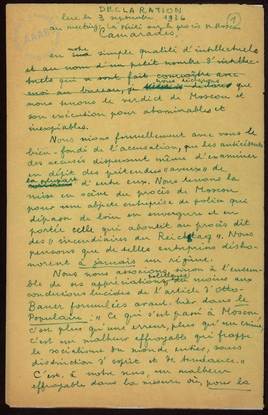 DECLARATION
lue le 3 septembre 1936 (1)
au meeting : la Vérité sur le procès de Moscou
Camarades,
en notre simple qualité d'intellectuels
et au nom d'un petit nombre d'intellec-
tuels qui se sont fait connaître avec
moi au bureau, je déclare que
nous tenons le verdict de Moscou et
son exécution pour abominables et
inexpiables.
Nous nions formellement avec vous le
bien-fondé de l'accusation, que les antécédents
des accusés dispensent même d'examiner
en dépit des prétendus « aveux » de
la plupart d'entre eux. Nous tenons la
mise en scène du procès de Moscou
pour une abjecte entreprise de police qui
dépasse de loin en envergure et en
portée celle qui aboutit au procès dit
des « incendiaires du Reichstag ». Nous
pensons que de telles entreprises désho-
norent à jamais un régime.
Nous nous associons, sinon à l'ensem-
ble de ses appréciations du moins aux
conclusions lucides de l'article d'Otto
Bauer formulées avant-hier dans le
Populaire : « Ce qui s'est passé à Moscou,
c'est plus qu'une erreur, plus qu'un crime,
c'est un malheur effroyable qui frappe
le socialisme du monde entier, sans
distinction d'esprit et de tendance. »
C'est, à notre sens, un malheur
effroyable dans la mesure où, pour la